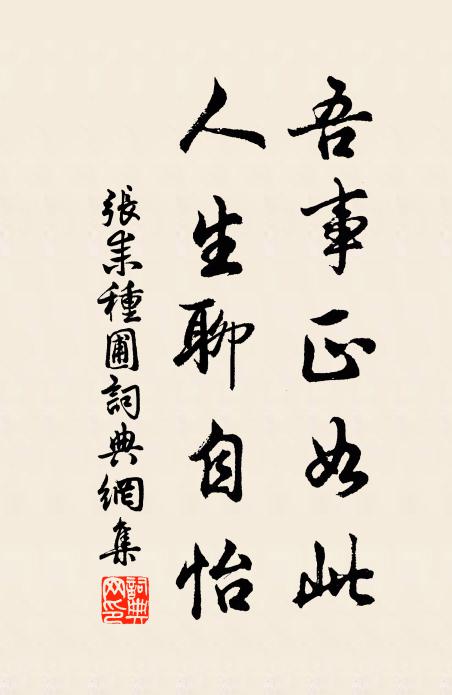 吾事正如此
人生聊自怡
張耒種圃詞典網集
詞典网印